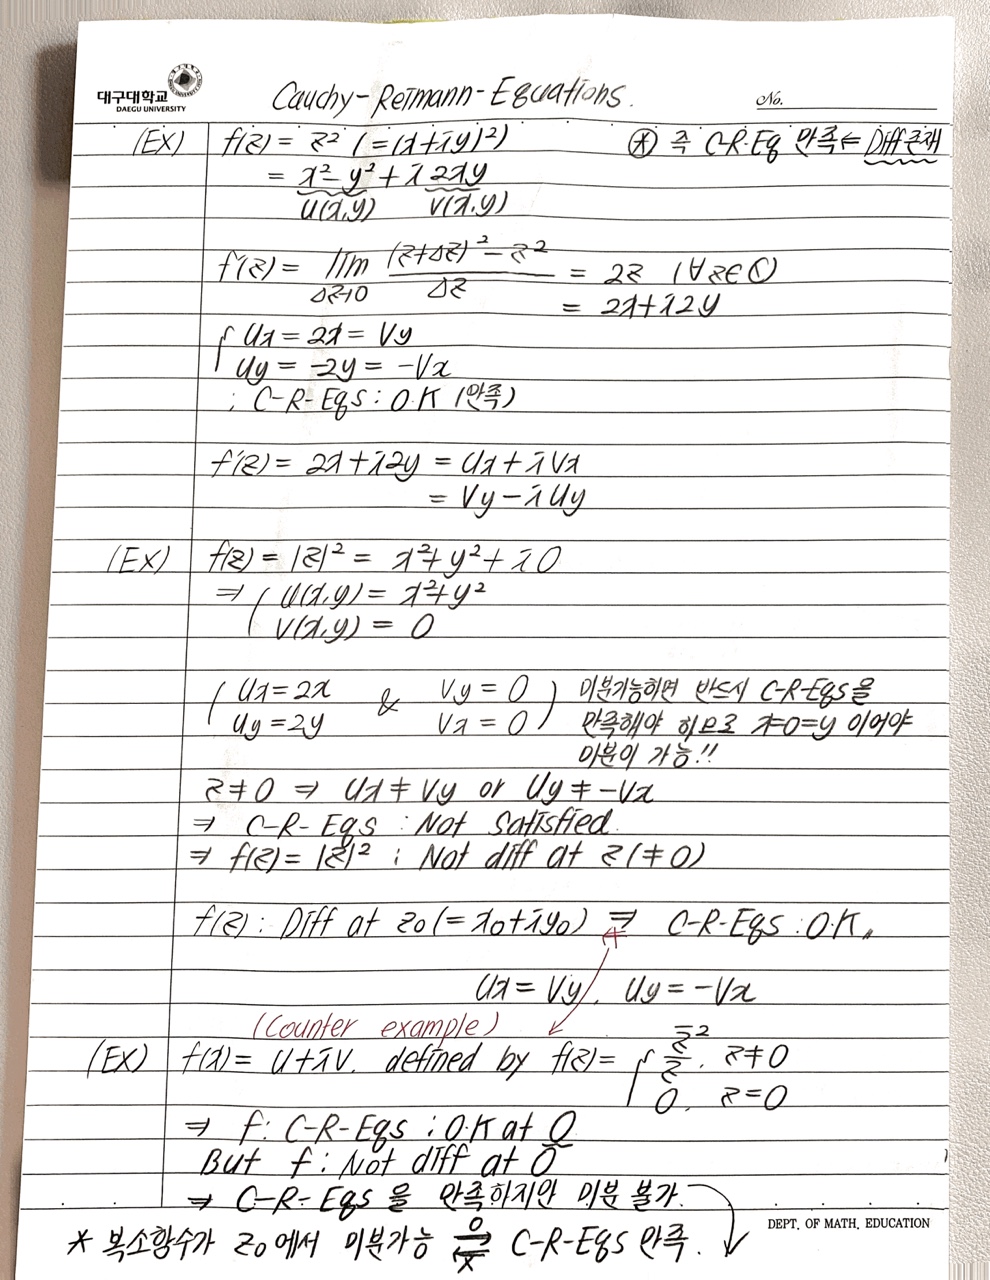 대구대학교
DAEGU UNIVERSITY
Cauchy-Reimann-Equations.
No.
(EX) f(z) = z² (=(x+iy)²)
⊛ 즉 C-R-Eq 만족 ⇐ Diff 존재
= x²-y²+i2xy
u(x,y) v(x,y)
f'(z) = lim_{Δz→0} ((z+Δz)²-z²)/Δz = 2z (∀z∈ℂ)
= 2x+i2y
{ Ux = 2x = Vy
Uy = -2y = -Vx
; C-R-Eqs : O.K (만족)
f'(z) = 2x+i2y = Ux+iVx
= Vy-iUy
(EX) f(z) = |z|² = x²+y²+i0
⇒ ( u(x,y) = x²+y²
v(x,y) = 0
( Ux=2x & Vy=0 ) 미분가능하면 반드시 C-R-Eqs을
Uy=2y Vx=0 만족해야 하므로 x=0=y 이어야
미분이 가능!!
z≠0 ⇒ Ux ≠ Vy or Uy ≠ -Vx
⇒ C-R-Eqs : Not satisfied.
⇒ f(z)=|z|² ; Not diff at z(≠0)
f(z) : Diff at z₀(=x₀+iy₀) ⇒ C-R-Eqs : O.K.
Ux = Vy, Uy = -Vx
(Counter example)
(EX) f(x) = u+iv. defined by f(z) = { z̄²/z, z≠0
0, z=0
⇒ f: C-R-Eqs ; O.K at 0
But f : Not diff at 0
⇒ C-R-Eqs 을 만족하지만 미분 불가.
DEPT. OF MATH. EDUCATION
* 복소함수가 z₀에서 미분가능 ⇄ C-R-Eqs 만족.
o
x